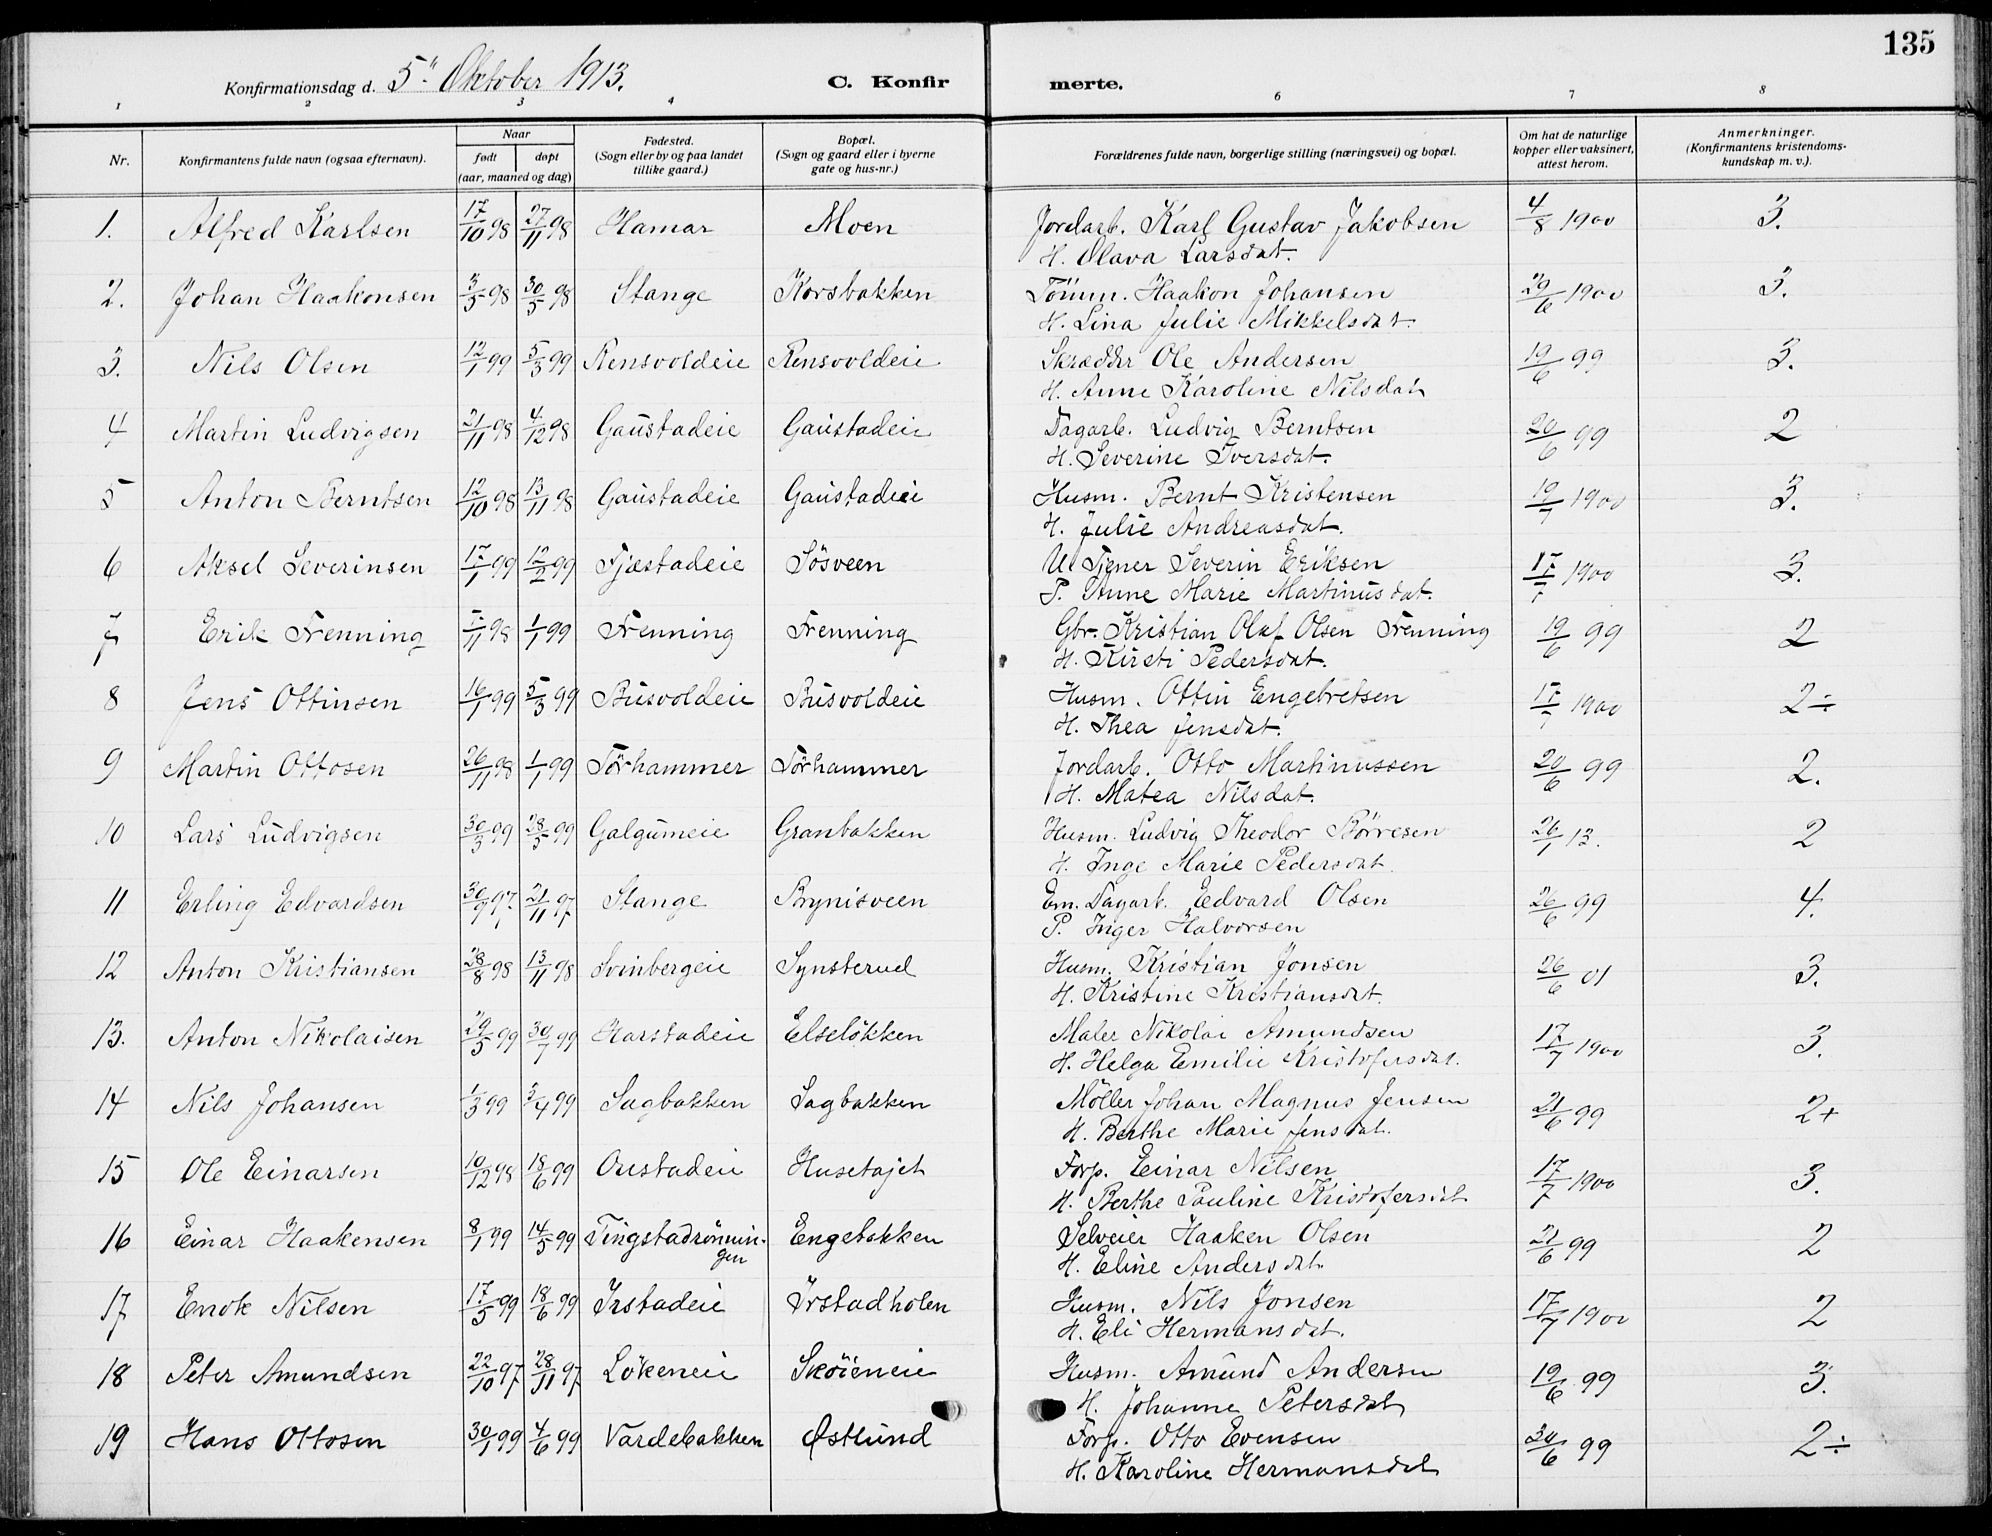 135
Konfirmationsdag d. 5" Oktober 1913. C. Konfir merte.
1 2 3 4 6 7 8
Nr. Konfirmantens fulde navn (ogsaa efternavn). Naar født døpt (aar, maaned og dag) Fødested. (Sogn eller by og paa landet tillike gaard.) Bopæl. (Sogn og gaard eller i byerne gate og hus-nr.) Forældrenes fulde navn, borgerlige stilling (næringsvei) og bopæl. Om hat de naturlige kopper eller vaksinert, attest herom. Anmerkninger. (Konfirmantens kristendomskundskap m. v.).
1. Alfred Karlsen 17/10 98 27/11 98 Hamar Moen Jordarb. Karl Gustav Jakobsen 4/8 1900 3.
H. Olava Larsdat.
2. Johan Haakonsen 3/5 98 30/5 98 Stange Korsbakken Tömm. Haakon Johansen 29/6 1900 3.
H. Lina Julie Mikkelsdat.
3. Nils Olsen 12/1 99 5/3 99 Rensvoldeie Rensvoldeie Skrædder Ole Andersen 19/6 99 3.
H. Anne Karoline Nilsdat
4 Martin Ludvigsen 21/11 98 4/12 98 Gaustadeie Gaustadeie Dagarb. Ludvig Berntsen 20/6 99 2
H. Severine Iversdat.
5 Anton Berntsen 12/10 98 13/11 98 Gaustadeie Gaustadeie Husm. Bernt Kristensen 19/7 1900 3.
H. Julie Andreasdat.
6 Aksel Severinsen 17/1 99 12/2 99 Fjæstadeie Sösveen U. Tjener Severin Eriksen 17/7 1900 3.
P. Anne Marie Martinusdat.
7 Erik Frenning 7/11 98 1/1 99 Frenning Frenning Gbr. Kristian Oluf Olsen Frenning 19/6 99 2
H. Kirsti Pedersdat.
8 Jens Ottinsen 16/1 99 5/3 99 Busvoldeie Busvoldeie Husm. Ottin Engebretsen 17/7 1900 2÷
H. Thea Jensdat.
9 Martin Ottosen 26/11 98 1/1 99 Törhammer Törhammer Jordarb. Otto Martinussen 20/6 99 2.
H. Matea Nilsdat.
10 Lars Ludvigsen 30/3 99 28/5 99 Galgumeie Granbakken Husm. Ludvig Theodor Börresen 26/1 13. 2
H. Inge Marie Pedersdat.
11 Erling Edvardsen 30/9 97. 21/11 97 Stange Brynisveen Em. Dagarb. Edvard Olsen 26/6 99 4.
P. Inger Halvorsen
12 Anton Kristiansen 28/8 98 13/11 98 Svinbergeie Synsterud Husm. Kristian Jonsen 26/6 01 3.
H. Kristine Kristiansdat.
13. Anton Nikolaisen 29/5 99 30/7 99 Harstadeie Elselökken Maler Nikolai Amundsen 17/7 1900 3.
H. Helga Emilie Kristofersdat.
14 Nils Johansen 1/3 99 3/4 99 Sagbakken Sagbakken Möller Johan Magnus Jensen 21/6 99 2+
H. Berthe Marie Jensdat.
15 Ole Einarsen 10/12 98 18/6 99 Oustadeie Husetajet Forp. Einar Nilsen 17/7 1900 3.
H. Berthe Pauline Kristofersdat
16 Einar Haakensen 8/1 99 14/5 99 Tingstadrönningen Engebakken Selveier Haaken Olsen 21/6 99 2
H. Eline Andersdat.
17 Enok Nilsen 17/5 99 18/6 99 Irstadeie Irstadholen Husm. Nils Jonsen 17/7 1900 2
H. Eli Hermansdat.
18 Peter Amundsen 22/10 97 28/11 97 Lökeneie Sköieneie Husm. Amund Andersen 19/6 99 3.
H. Johanne Petersdat
19 Hans Ottosen 30/1 99 4/6 99 Vardebakken Østlund Forp. Otto Evensen 30/6 99 2÷
H. Karoline Hermansdat